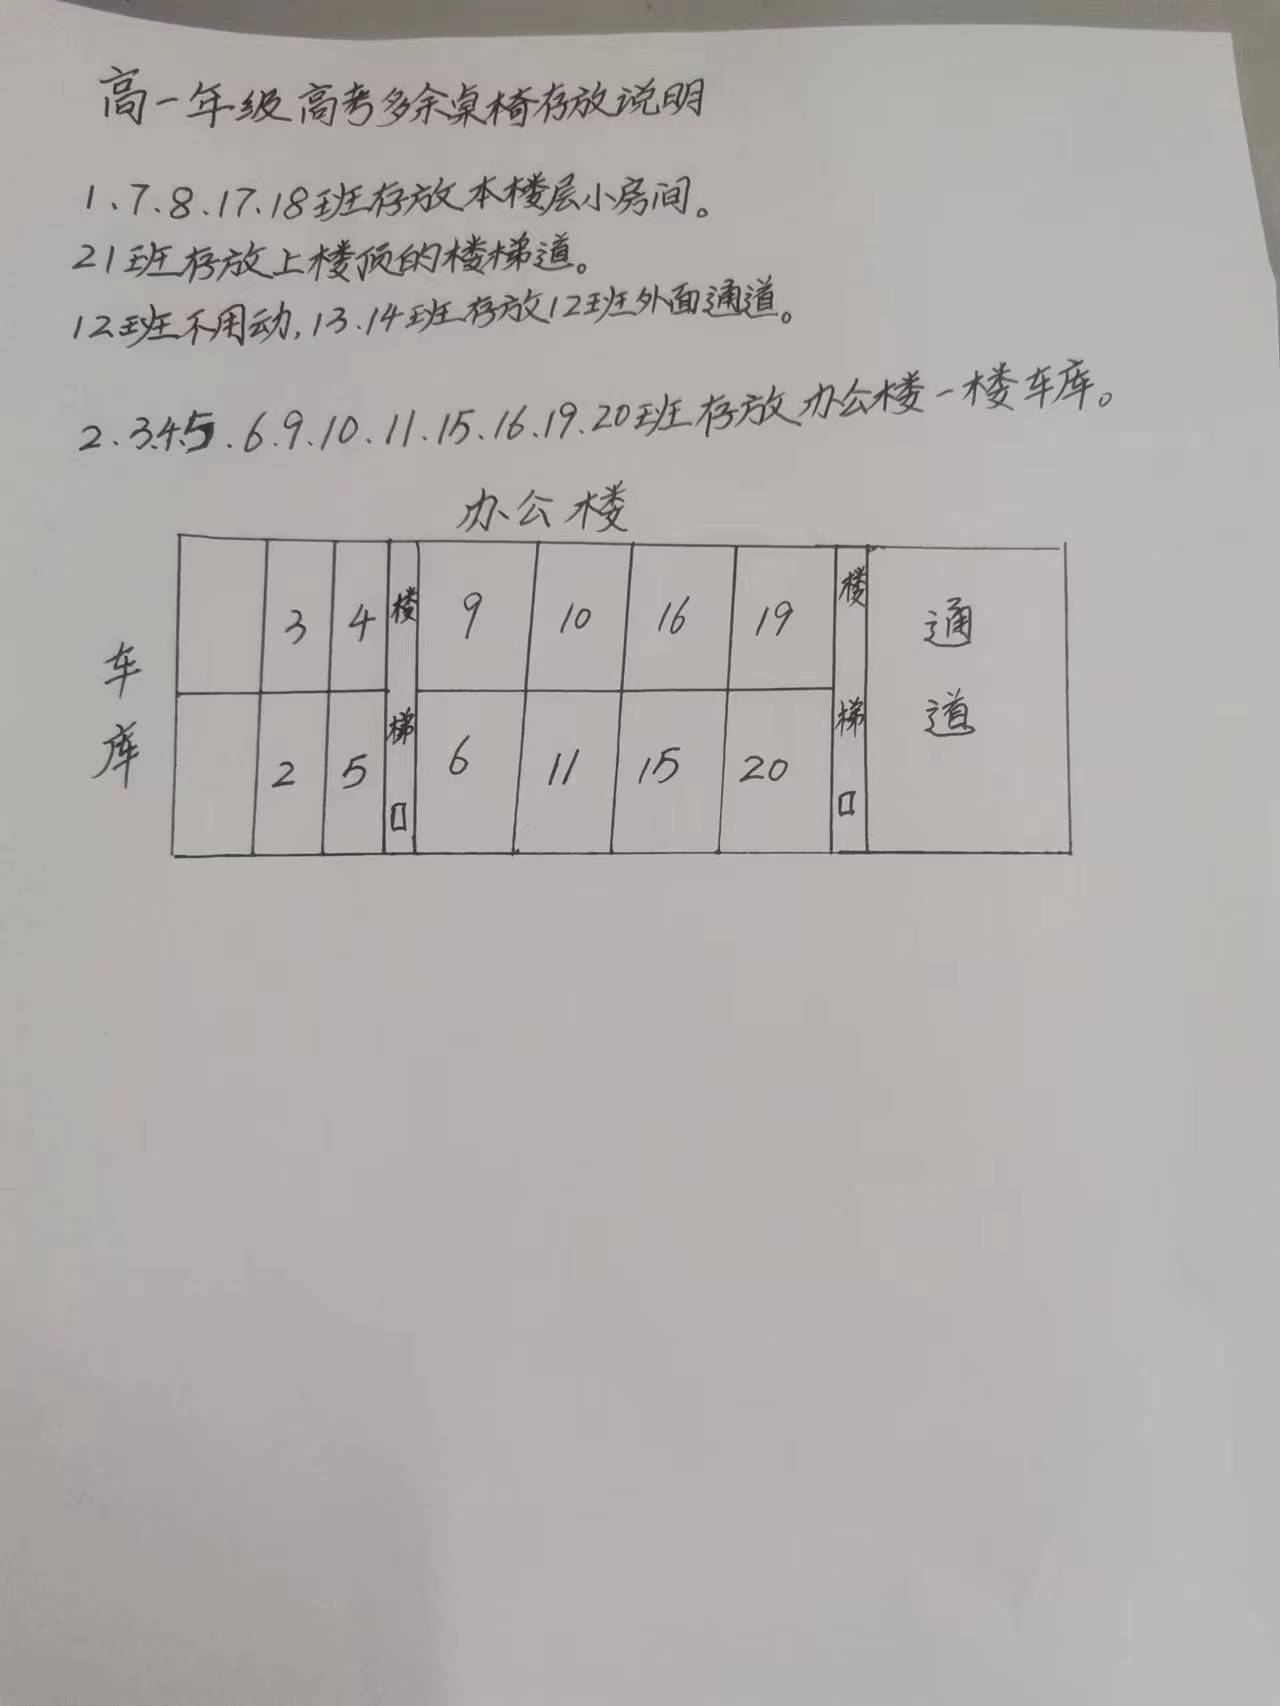 高一年级高考多余桌椅存放说明
1、7、8、17、18班存放本楼层小房间。
21班存放上楼顶的楼梯道。
12班不用动,13.14班存放12班外面通道。
2.3.4.5.6.9.10.11.15.16.19.20班存放办公楼一楼车库。
办公楼
车库
3 4 9 10 16 19
2 5 6 11 15 20
楼梯口
楼梯口
通道